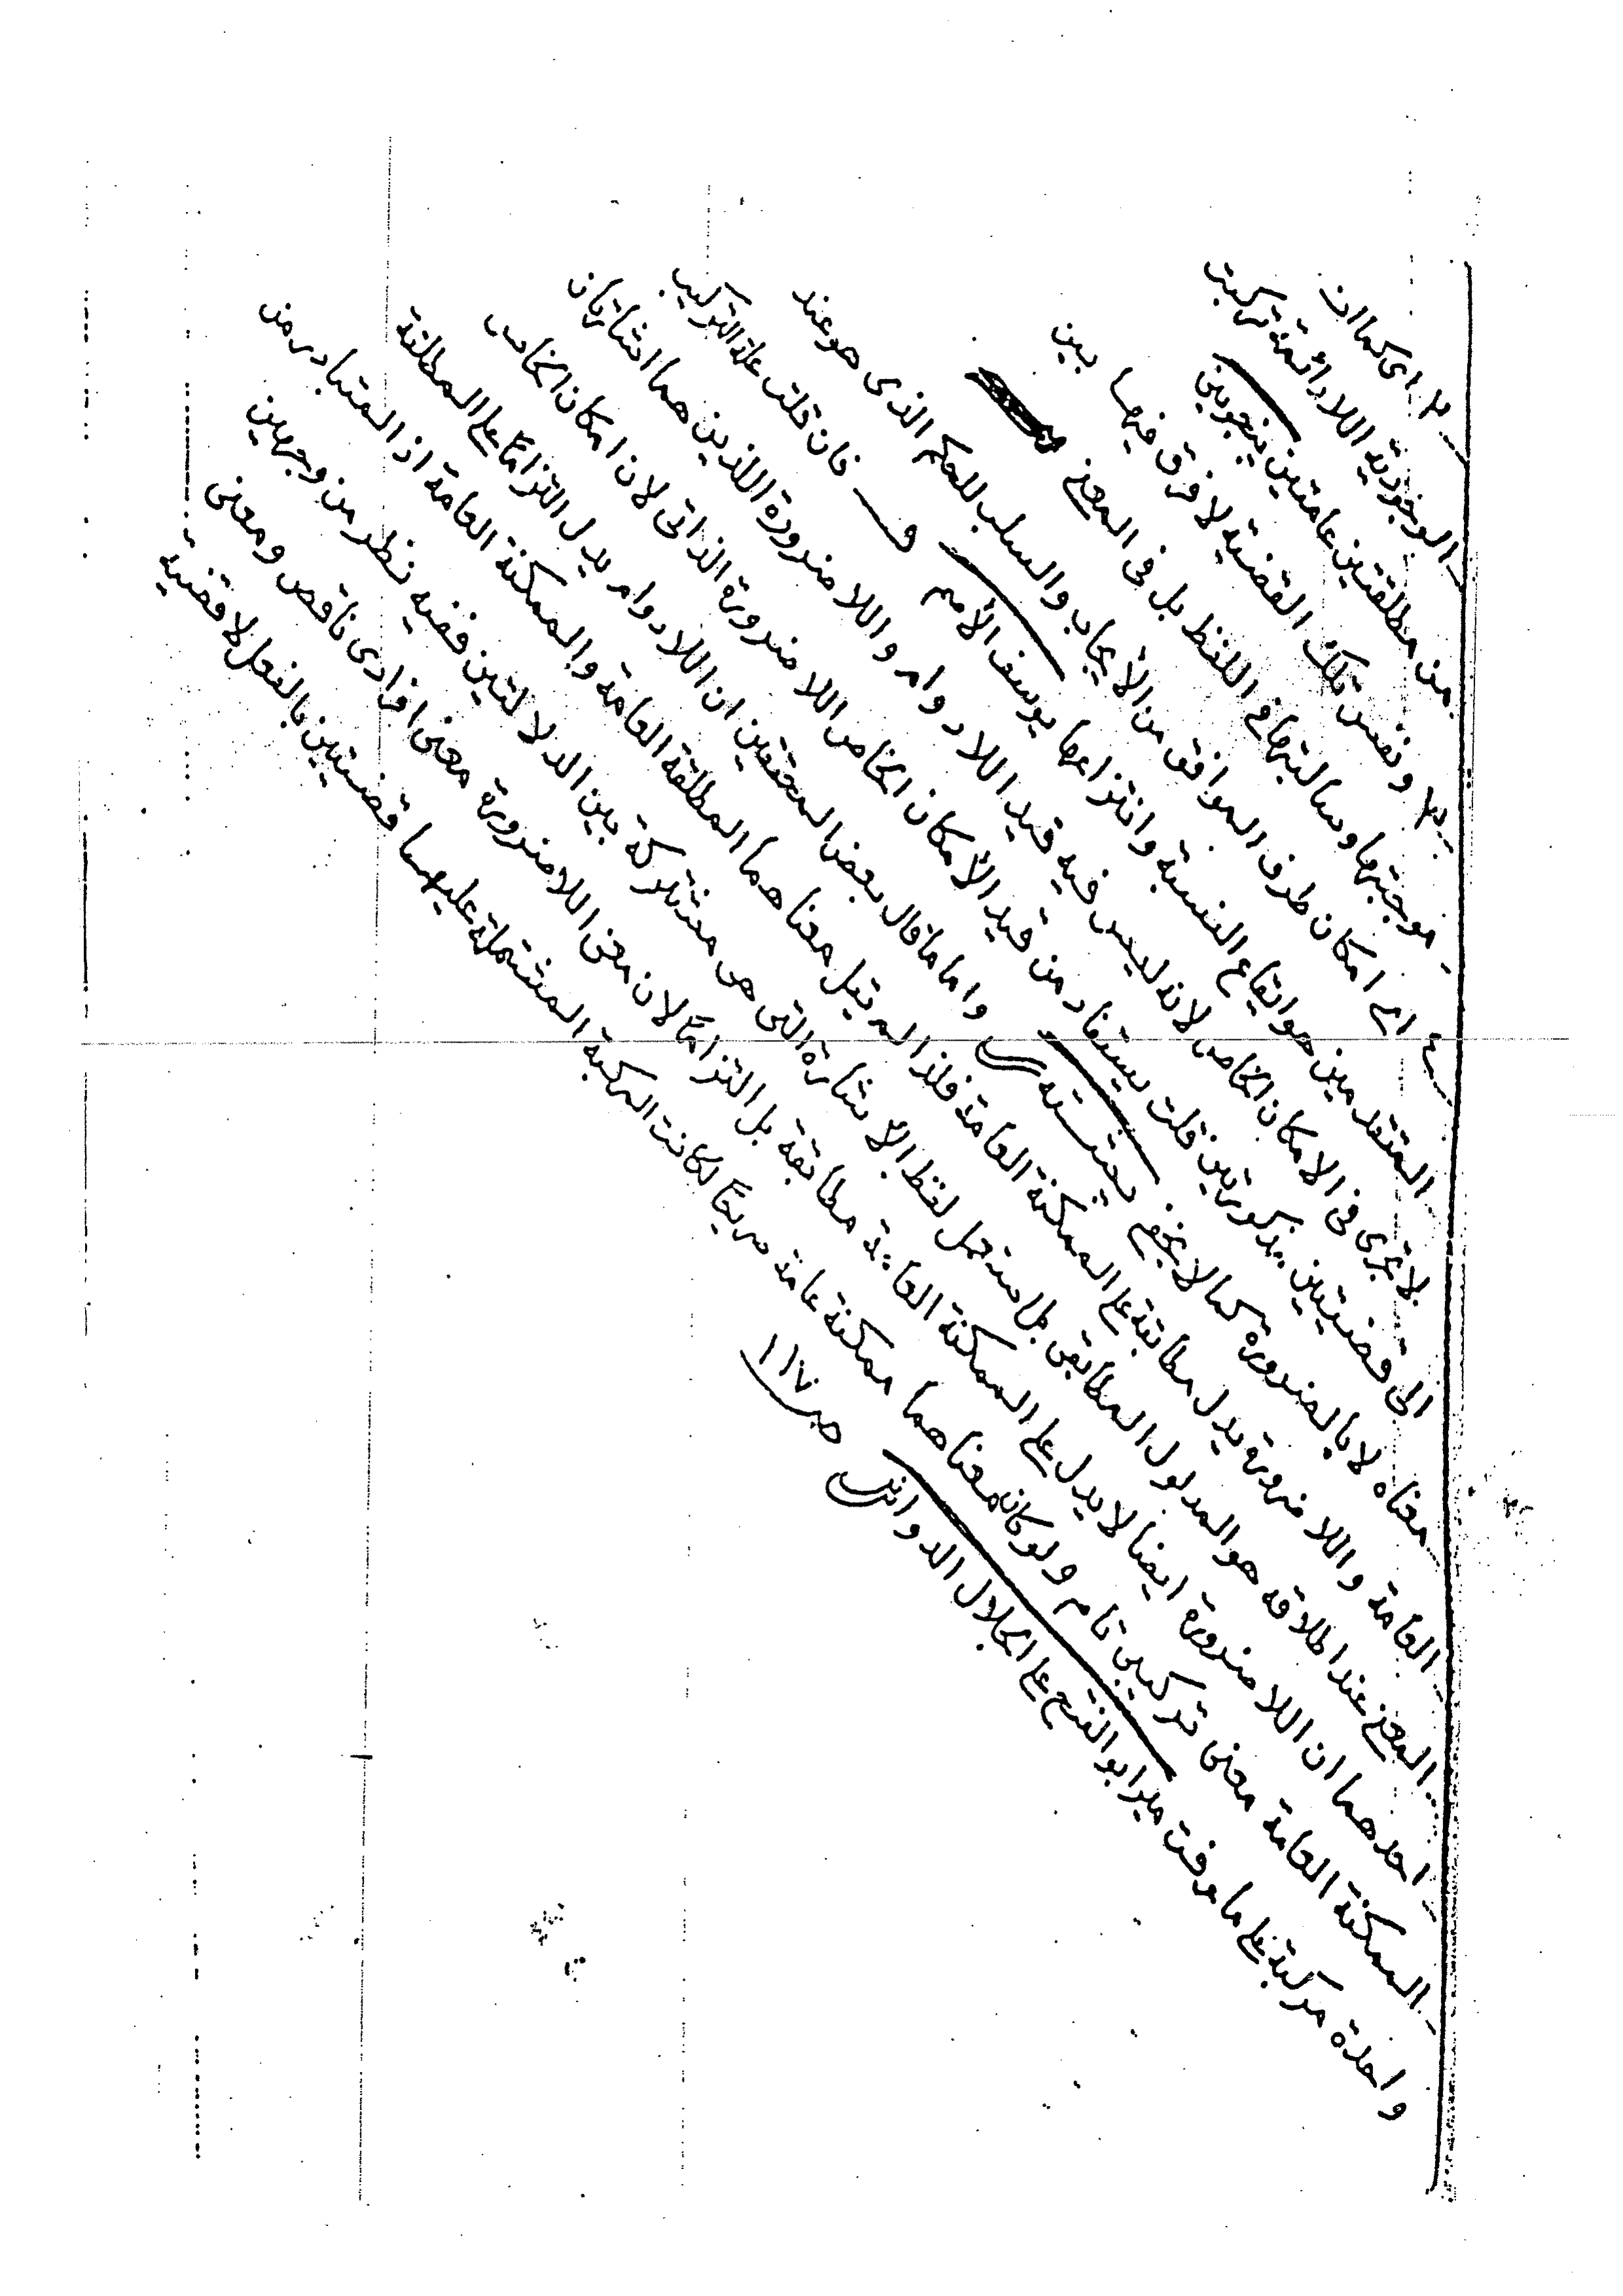 ٢ اى كما ان
الوجودية اللادائمة تركبت
من مطلقتين عامتين ينجوينى
٣ ونفس تلك القضية لا فرق فيها بين
موجبتها وسالبتها فى اللفظ بل فى المعنى
٤ اى امكان طرف الموافق من الايجاب والسلب للحكم الذى هو عند
المتقدمين هو ايقاع النسبة وانتزاعها يوسف الاصم ف فان قلت علة التركيب
لا تجرى فى الامكان الخاص لانه ليس فيه قيد اللادوام واللاضرورة اللذين هما اشارتان
الى قضيتين مذكورتين قلت يستفاد من قيد الامكان الخاص اللاضرورة الذاتى لان امكان الخاص
معناه لا بالضرورة كما لا يخفى واما ما قال بعض المحققين ان اللادوام يدل التزاما على المطلقة
العامة واللاضرورة يدل مطابقة على الممكنة العامة فلذا لم يقل معناهما المطلقة العامة والممكنة العامة اذ المتبادر من
المعنى عند اطلاقه هو المدلول المطابقى بل استعمل لفظ الاشارة التى هى مشتركة بين الدلالتين ففيه نظر من وجهين
احدهما ان اللاضرورة ايضا لا يدل على الممكنة العامة مطابقة بل التزاما لان معنى اللاضرورة معنى افرادى ناقص ومعنى
الممكنة العامة معنى تركيبى تام ولو كان معناهما ممكنة عامة صريحا لكانت المركبة المشتملة عليهما قضيتين بالفعل لا قضية
واحدة مركبة على ما عرفت مير ابو الفتح على الجلال الدوانى ص ١١٧